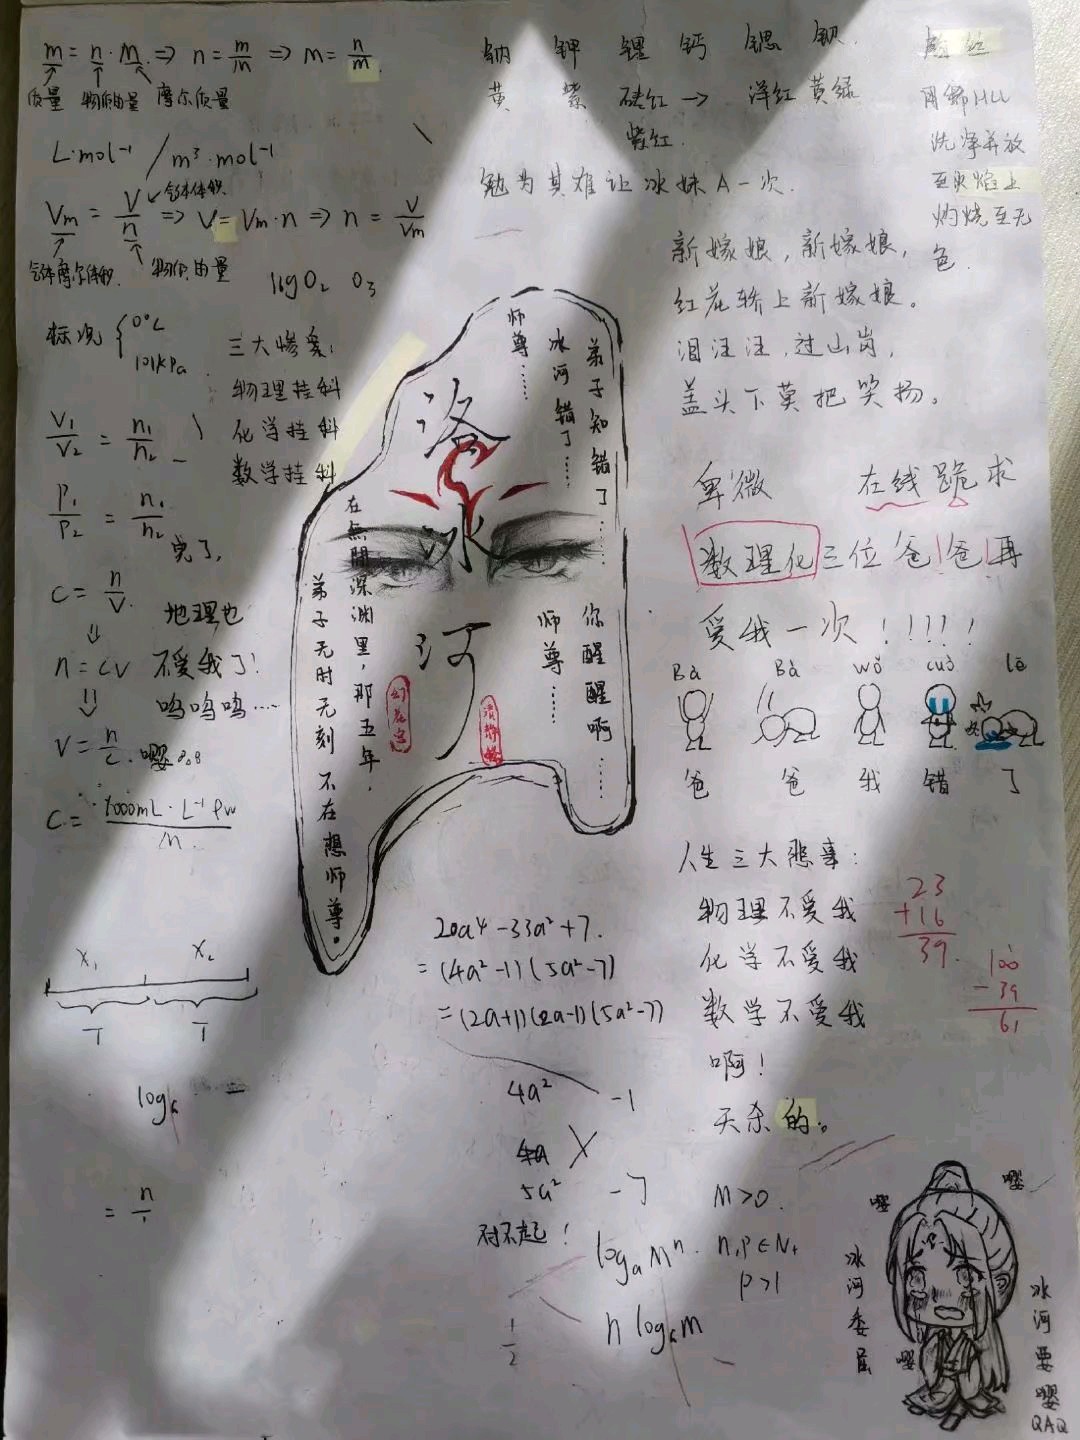 m = n · M ⇒ n = m/m ⇒ m = n/m.
质量 物质由量 摩尔质量
L·mol⁻¹ / m³·mol⁻¹
气体体积
Vm = V/n ⇒ V = Vm·n ⇒ n = V/Vm
气体摩尔体积. 物质由量
O₂ O₃
标况 { 0℃
101kPa
三大惨案:
物理挂科
化学挂科
数学挂科
V₁/V₂ = n₁/n₂
P₁/P₂ = n₁/n₂
完了,
地理也
不爱我了!
呜呜呜…
C = n/V.
⇓
n = CV
⇓
V = n/c. 嘤
C = 1000mL·L⁻¹ρw/M.
X₁ X₂
T T
logₐ
= n
钠 钾 锂 钙 锶 钡.
黄 紫 砖红 → 洋红 黄绿
紫红.
勉为其难让冰妹A一次.
用稀HCl
洗净并放
至火焰上
灼烧至无
色.
新嫁娘, 新嫁娘,
红花轿上新嫁娘。
泪汪汪, 过山岗,
盖头下莫把笑扬。
洛冰河
师尊……
冰河错了……
弟子知错了……
师尊……
你醒醒啊……
在無間深渊里,那五年,
弟子无时无刻不在想师尊。
幻花宫
清静峰
卑微 在线跪求
数理化三位爸爸再
爱我一次!!!!!
Bà Bà wǒ cuò le
爸 爸 我 错 了
人生三大悲事:
物理不爱我
化学不爱我
数学不爱我
啊!
天杀的。
23
+16
39.
100
-39
61
20a⁴-33a²+7.
=(4a²-1)(5a²-7)
=(2a+1)(2a-1)(5a²-7)
4a² -1
4a
5a² -7
对不起!
logₐMⁿ.
n logₐM
M>0.
n,p∈N₊
p>1
1/2
嘤
嘤
嘤
冰河委屈
冰河要嘤
QAQ